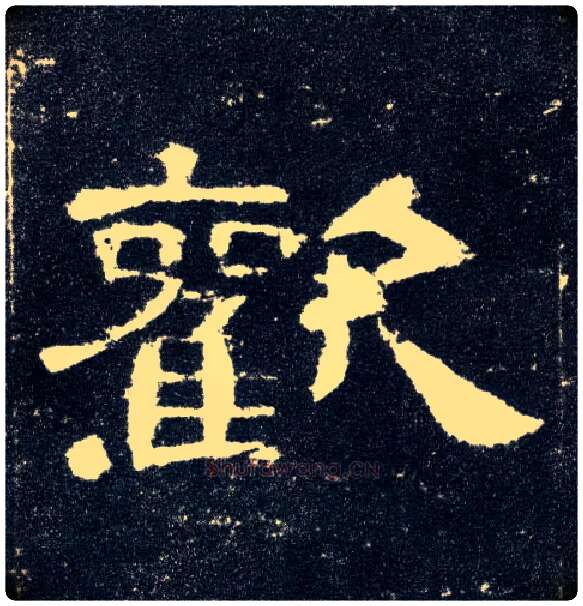 歡
shufawang.CN